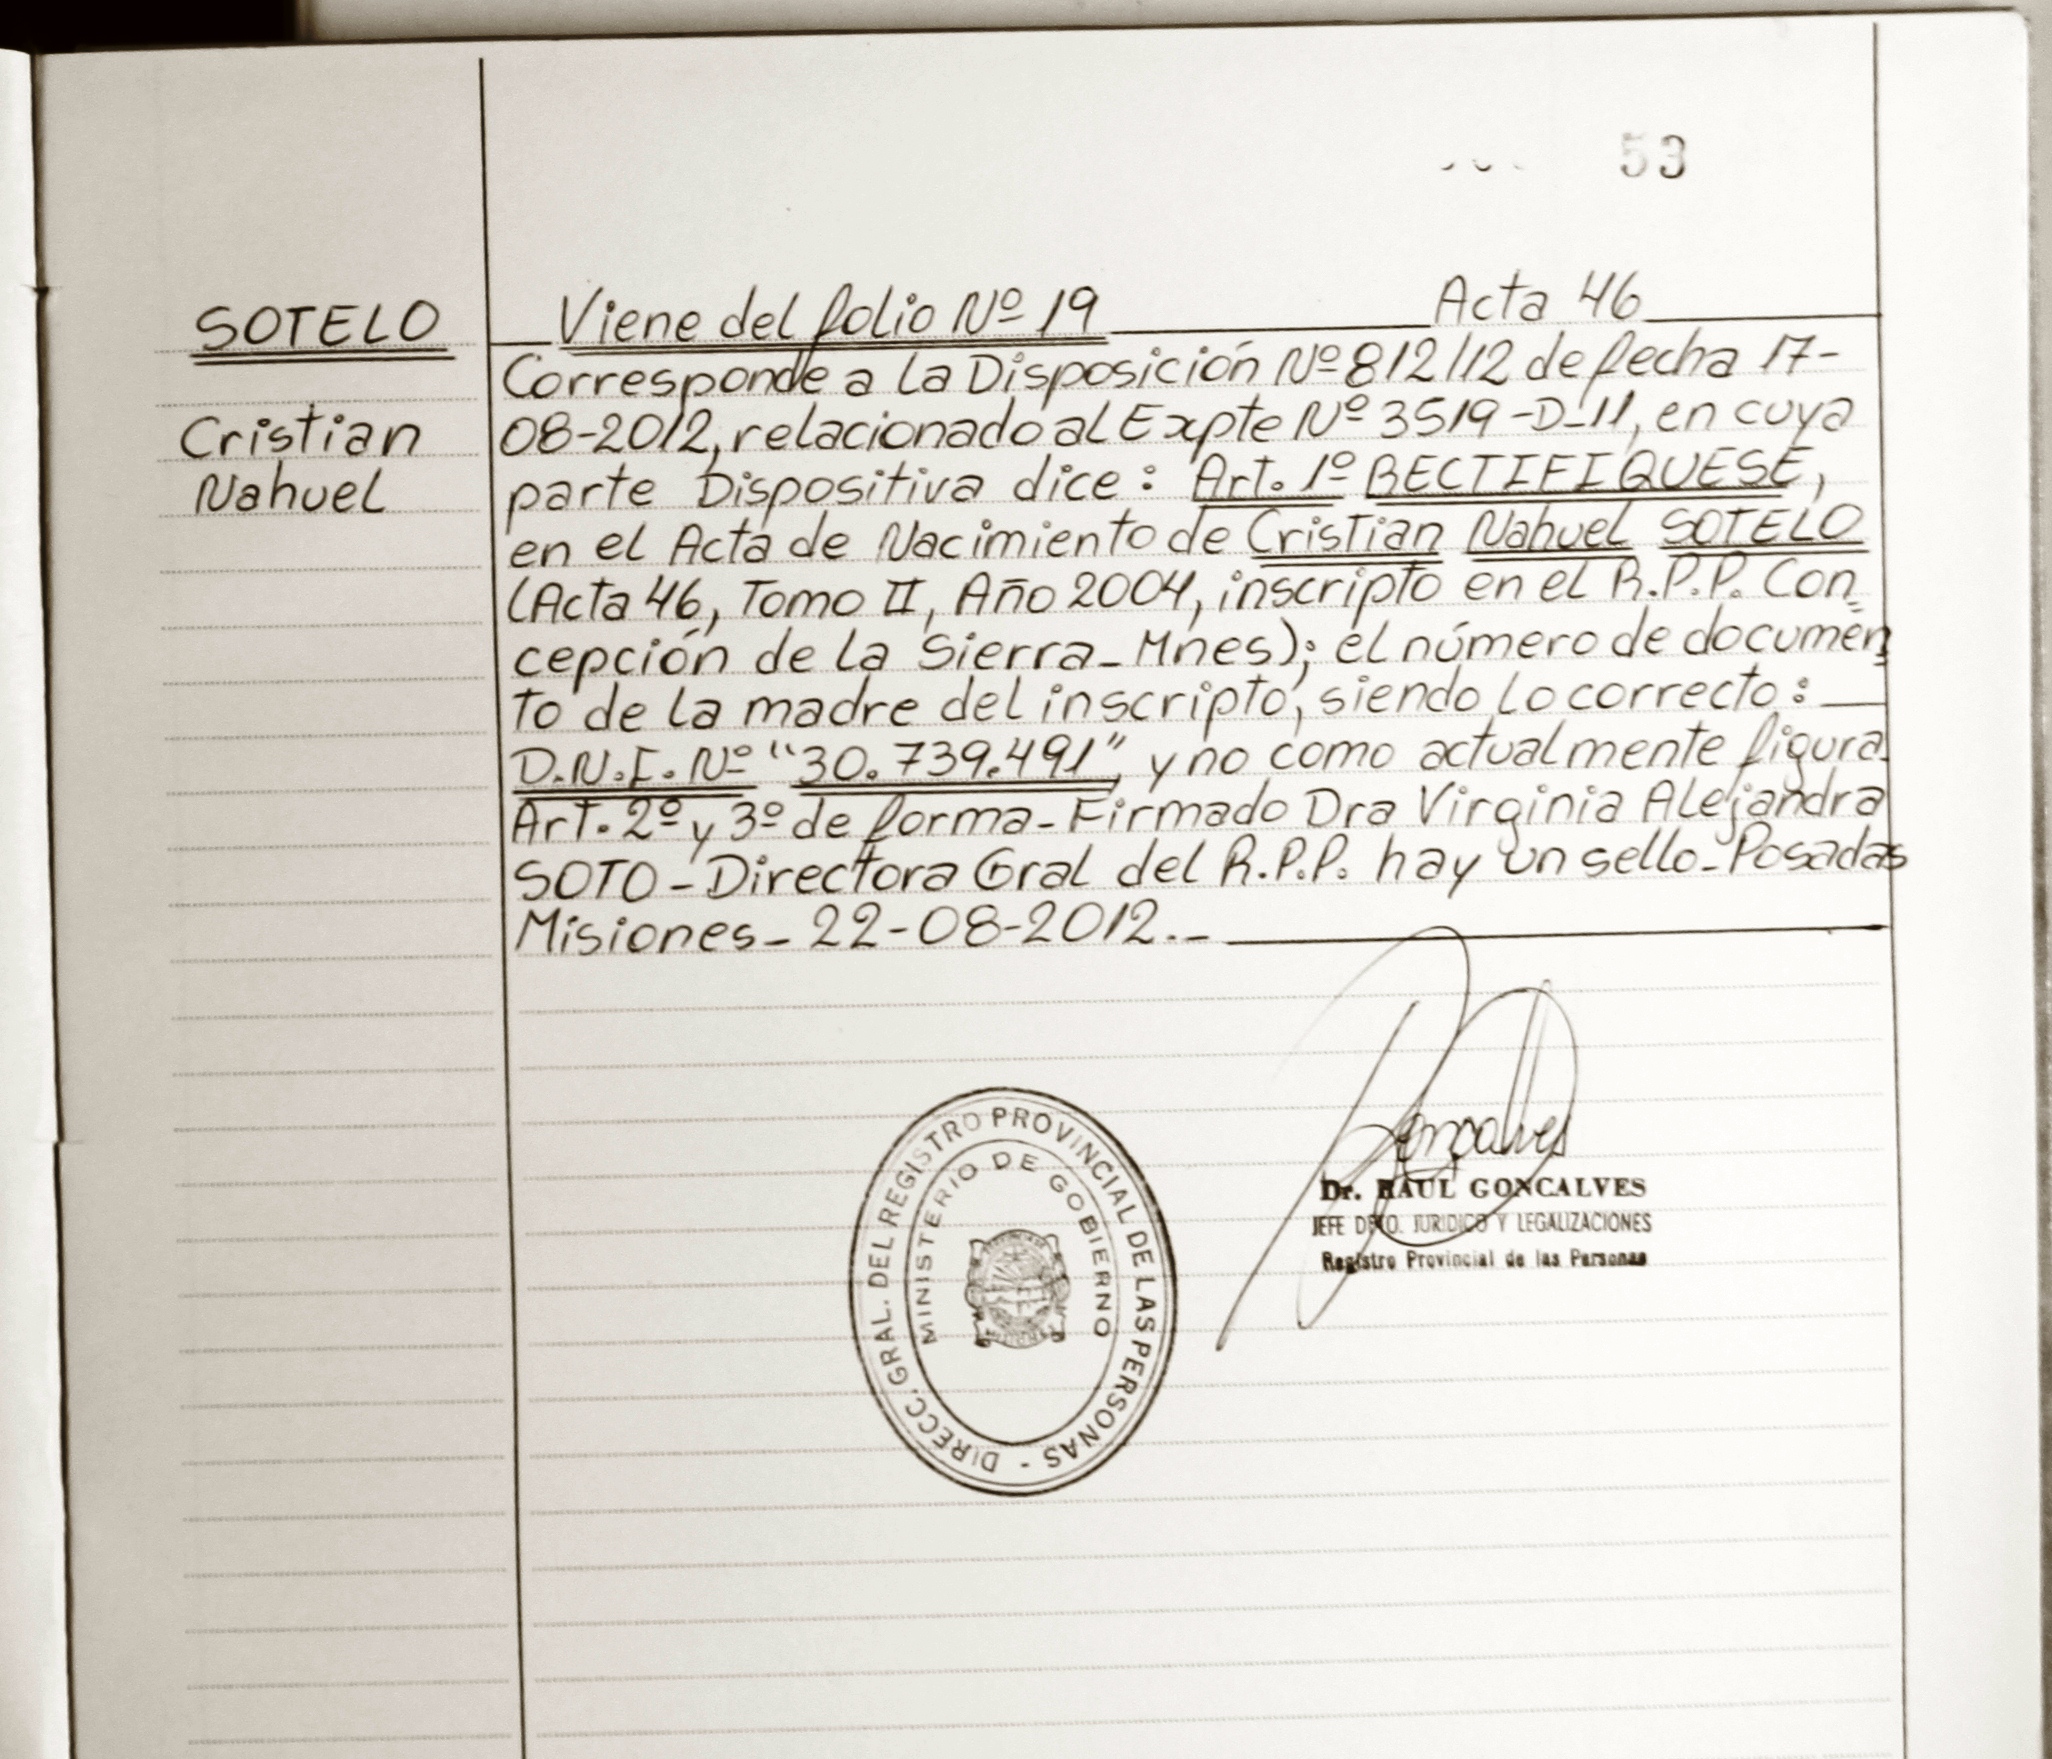 53
SOTELO
Cristian
Nahuel
Viene del folio Nº 19 Acta 46
Corresponde a la Disposición Nº 812/12 de fecha 17-
08-2012, relacionado al Expte Nº 3519-D-11, en cuya
parte Dispositiva dice: Art. 1º RECTIFIQUESE,
en el Acta de Nacimiento de Cristian Nahuel SOTELO
(Acta 46, Tomo II, Año 2004, inscripto en el R.P.P. Con=
cepción de la Sierra_Mnes); el número de documen=
to de la madre del inscripto, siendo lo correcto:
D.N.I. Nº "30.739.491" y no como actualmente figura.
Art. 2º y 3º de forma_Firmado Dra Virginia Alejandra
SOTO-Directora Gral del R.P.P. hay un sello_Posadas
Misiones_22-08-2012._
DIRECC. GRAL. DEL REGISTRO PROVINCIAL DE LAS PERSONAS -
MINISTERIO DE GOBIERNO
Gonçalves
Dr. RAUL GONCALVES
JEFE DPTO. JURIDICO Y LEGALIZACIONES
Registro Provincial de las Personas